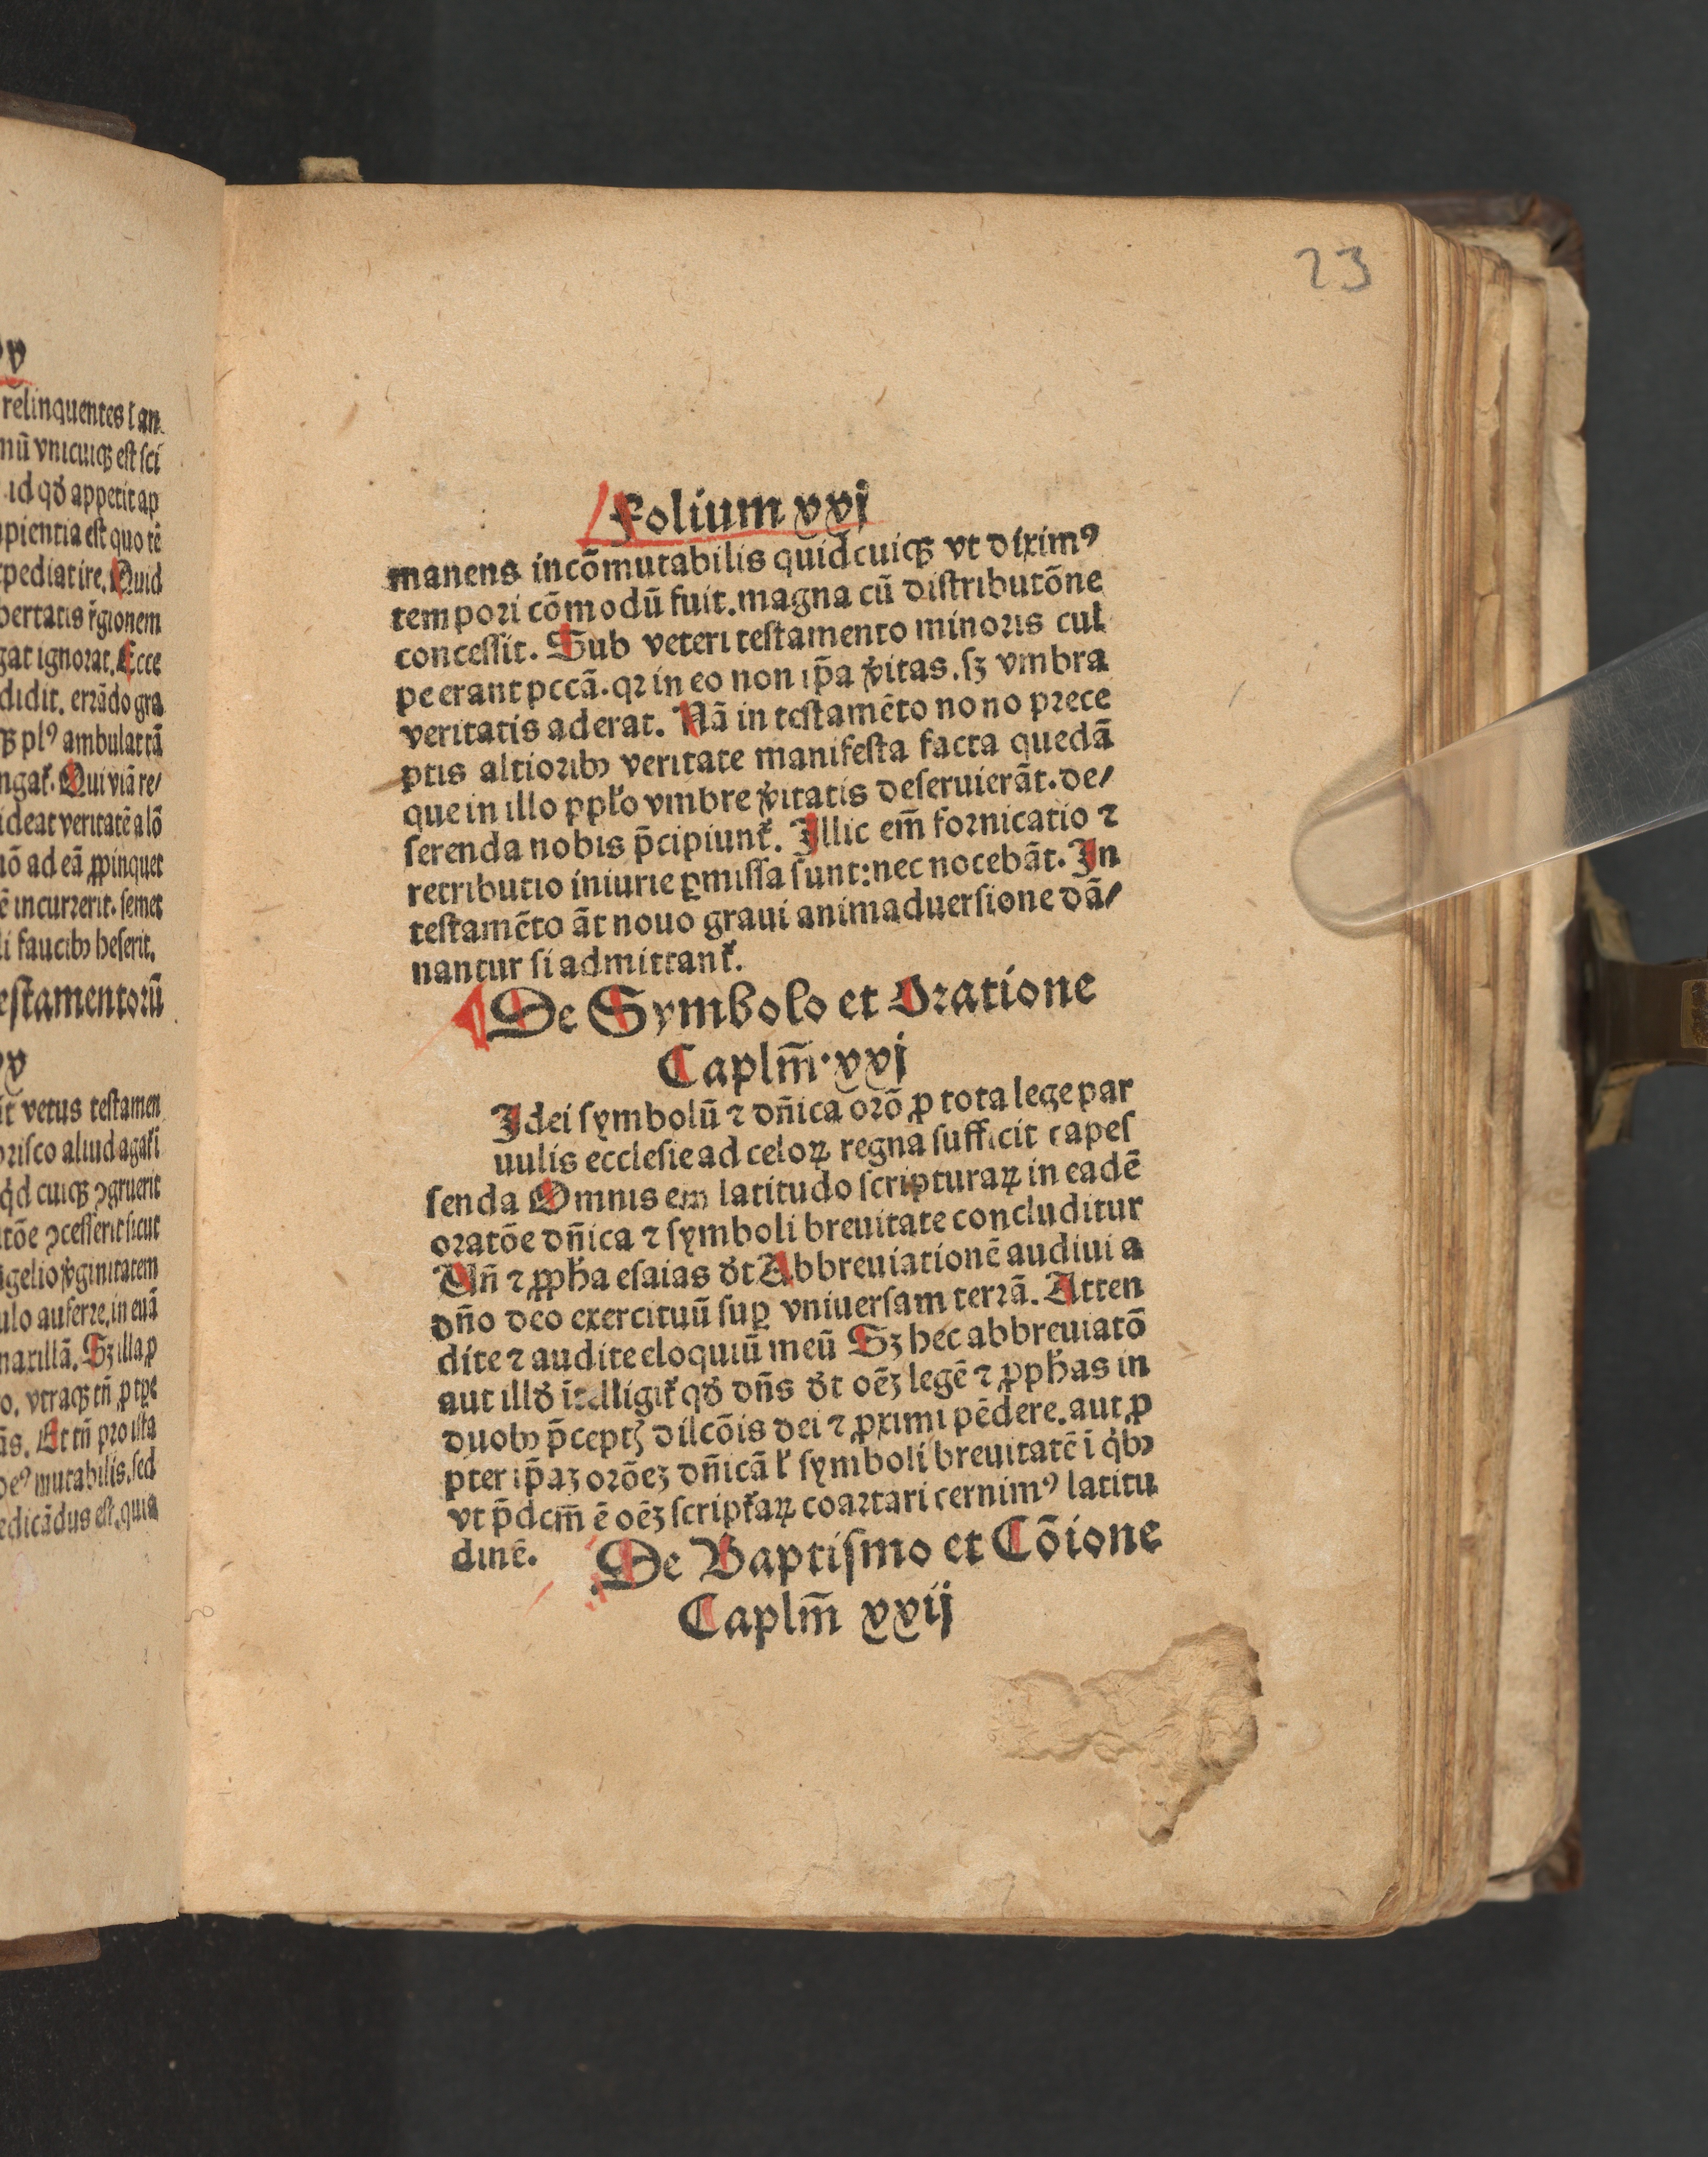 v
relinquentes ⁊ an
mū vnicuiqꝫ est sci
id qđ appetit ap
apientia est quo tē
pediat ire. Quid
bertatis r̃gionem
gat ignorat. Ecce
didit. errādo gra
qꝫ plꝰ ambulat tā
ngat᷑. Qui viā re/
ideat veritatē a lō
nō ad eā ꝓpinquet
ē incurrerit. semet
li faucibꝰ heserit.
estamentorū
v
it vetus testamen
orisco aliud agat᷑ i
qd cuiqꝫ ꝯgruerit
tōe ꝯcesserit sicut
ngelio v̓ginitatem
ulo auferre, in euā
maxillā. Sꝫ illa ꝓ
o. vtraqꝫ tn̄ ꝓ tꝑe
ās. Et tn̄ pro ista
deꝰ mutabilis. sed
edicādus est. quia
23
Folium xxi
manens incōmutabilis quid cuiqꝫ vt diximꝰ
tempori cōmodū fuit. magna cū distributōne
concessit. Sub veteri testamento minoris cul
pe erant pccā. qꝛ in eo non ip̄a v̓itas. sꝫ vmbra
veritatis aderat. Nā in testamēto nono prece
ptis altioribꝰ veritate manifesta facta quedā
que in illo pp̄lo vmbre v̓itatis deseruierāt. de/
serenda nobis p̄cipiunt᷑. Illic em̄ fornicatio ⁊
retributio iniurie ꝑmissa sunt: nec nocebāt. In
testamēto āt nouo graui animaduersione dā/
nantur si admittant᷑.
De Symbolo et Oratione
Caplm̄. xxi
Idei symbolū ⁊ dn̄ica orō ꝓ tota lege par
uulis ecclesie ad celoꝝ regna sufficit capes
senda Omnis em latitudo scripturaꝝ in eadē
oratōe dn̄ica ⁊ symboli breuitate concluditur
Vn̄ ⁊ ꝓpħa esaias dt̓ Abbreuiationē audiui a
dn̄o deo exercituū suꝑ vniuersam terrā. Atten
dite ⁊ audite eloquiū meū Sꝫ hec abbreuiatō
aut illđ ītelligit᷑ qđ dn̄s dt̓ oēꝫ legē ⁊ ꝓpħas in
duobꝰ p̄ceptꝭ dilcōis dei ⁊ ꝓximi pēdere. aut ꝓ
pter ip̄aꝫ orōeꝫ dn̄icā ł symboli breuitatē ī qͥbꝰ
vt p̄dcm̄ ē oēꝫ script᷑aꝝ coartari cernimꝰ latitu
dinē. De Baptismo et Cōione
Caplm̄ xxij